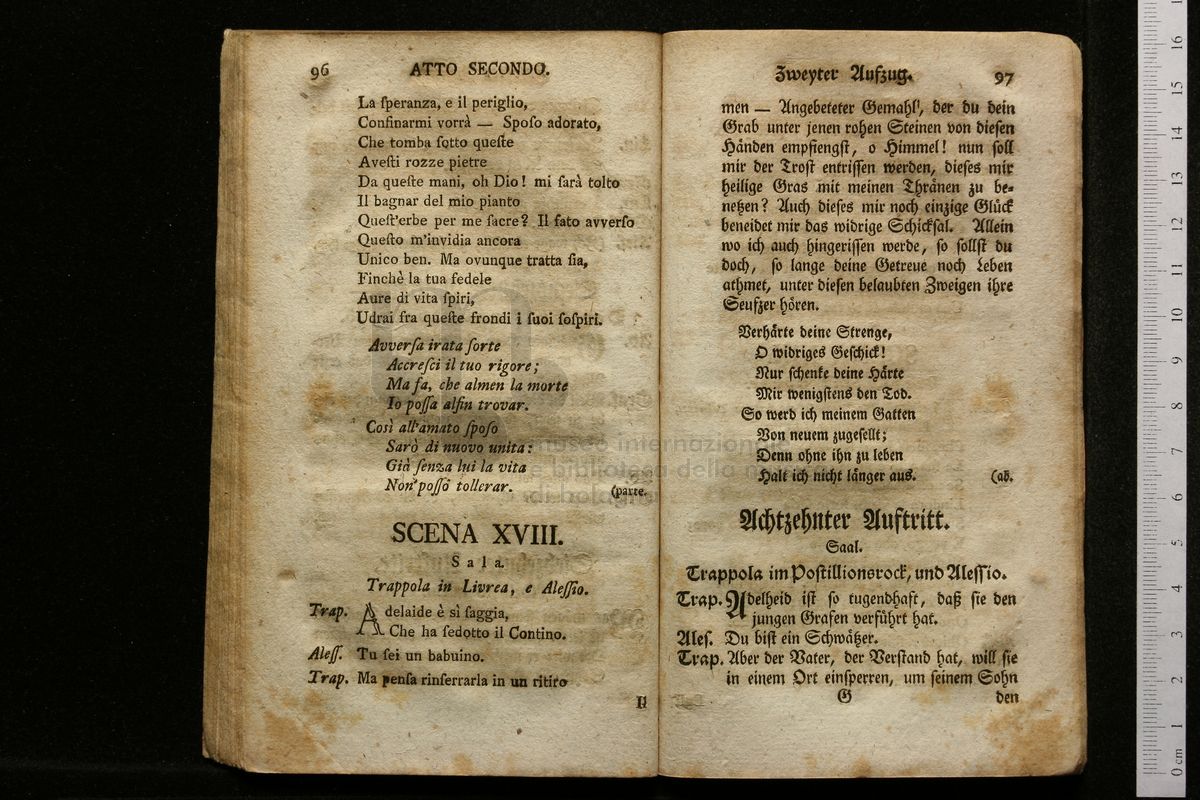 96 ATTO SECONDO.
La ſperanza, e il periglio,
Confinarmi vorrà — Spoſo adorato,
Che tomba ſotto queſte
Aveſti rozze pietre
Da queſte mani, oh Dio! mi ſarà tolto
Il bagnar del mio pianto
Queſt'erbe per me ſacre? Il fato avverſo
Queſto m'invidia ancora
Unico ben. Ma ovunque tratta ſia,
Finchè la tua fedele
Aure di vita ſpiri,
Udrai fra queſte frondi i ſuoi ſoſpiri.
Avverſa irata ſorte
Accreſci il tuo rigore;
Ma fa, che almen la morte
Io poſſa alfin trovar.
Così all'amato ſpoſo
Sarò di nuovo unita:
Già ſenza lui la vita
Non poſſo tollerar. (parte.
SCENA XVIII.
Sala.
Trappola in Livrea, e Aleſſio.
Trap. Adelaide è sì ſaggia,
Che ha ſedotto il Contino.
Aleſſ. Tu ſei un babuino.
Trap. Ma penſa rinſerrarla in un ritiro
Il
Zweyter Aufzug. 97
men — Angebeteter Gemahl, der du dein
Grab unter jenen rohen Steinen von dieſen
Händen empfiengſt, o Himmel! nun ſoll
mir der Troſt entriſſen werden, dieſes mir
heilige Gras mit meinen Thränen zu be-
netzen? Auch dieſes mir noch einzige Glück
beneidet mir das widrige Schickſal. Allein
wo ich auch hingeriſſen werde, ſo ſollſt du
doch, ſo lange deine Getreue noch Leben
athmet, unter dieſen belaubten Zweigen ihre
Seufzer hören.
Verhärte deine Strenge,
O widriges Geſchick!
Nur ſchenke deine Härte
Mir wenigſtens den Tod.
So werd ich meinem Gatten
Von neuem zugeſellt;
Denn ohne ihn zu leben
Halt ich nicht länger aus. (ab.
Achtzehnter Auftritt.
Saal.
Trappola im Poſtillionsrock, und Aleſſio.
Trap. Adelheid iſt ſo tugendhaft, daß ſie den
jungen Grafen verführt hat.
Aleſ. Du biſt ein Schwätzer.
Trap. Aber der Vater, der Verſtand hat, will ſie
in einem Ort einſperren, um ſeinem Sohn
G den
museo internazionale
e biblioteca della
di bologna
16
15
14
13
12
11
10
9
8
7
6
5
4
3
2
1
0 cm